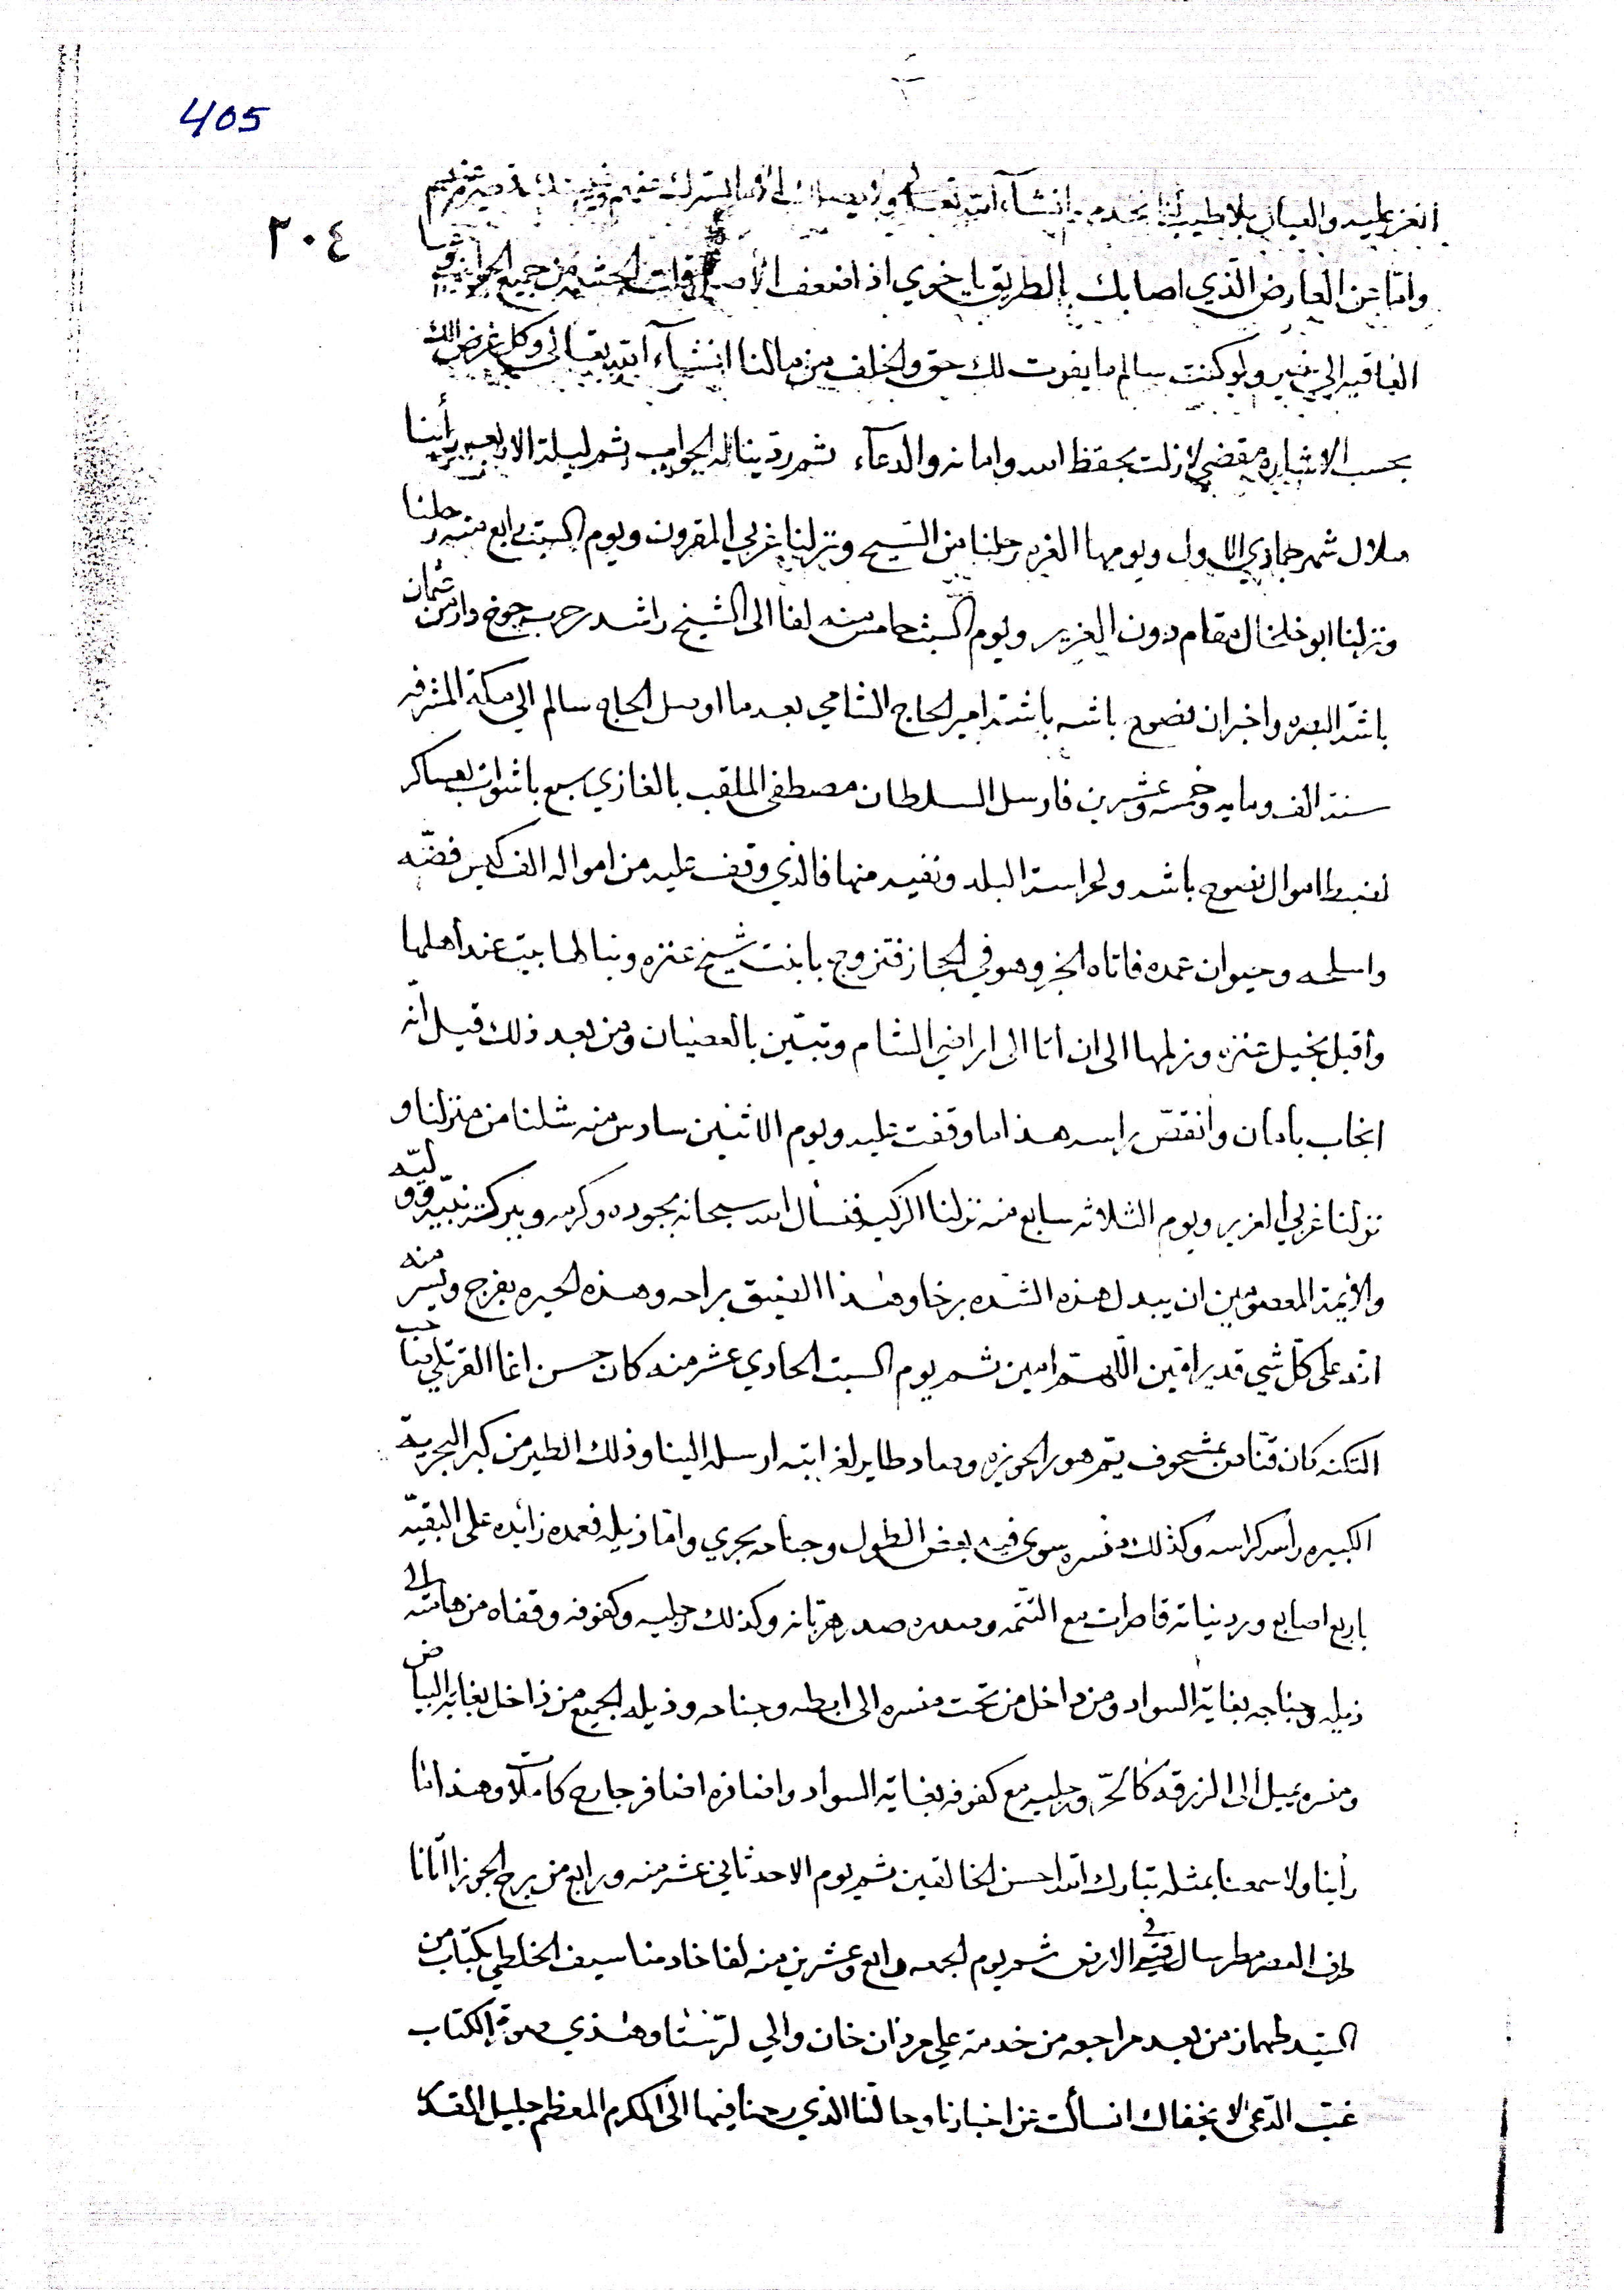 405
٣٠٤
انشاء الله تعالى
واما عن العارض الذي اصابك بالطريق يا خوي اذا ضعف الاصل قلت الحشمه من جميع الجوانب وما
العاقبه الى خير ولو كنت سالم ما يفوت لك حق والخلف من مالنا انشاء الله تعالى وكل غرض لك
بحسب الاشاره مقضي لا زلت بحفظ الله وامانه والدعاء ثم ردينا له الجواب ثم ليلة الاربعه رأينا
هلال شهر جمادي الاول ويومها الغره رحلنا من السيح ونزلنا غربي المقرون ويوم السبت رابع منه رحلنا
ونزلنا ابو خلخال مقام دون الغزير ويوم السبت خامس منه لفا الى الشيخ راشد حرب جوخدار من عثمان
باشة البصره واخبر ان نصوح باشه باشة امير الحاج الشامي بعد ما اوصل الحاج سالم الى مكة المشرفه
سنة الف ومايه وخمسه وعشرين فارسل السلطان مصطفى الملقب بالغازي سبع باشوات بعساكر
لضبط اموال نصوح باشه ولحراسة البلد ونفيه منها فالذي وقف عليه من امواله الف كيس فضّه
واسلحه وحيوان عمده فاتاه الخبر وهو في الحجاز فتزوج بابنت شيخ عنزه وبنا لها بيت عند أهلها
وأقبل بخيل عنزه وزلمها الى ان أتا الى اراضي الشام وتبيّن بالعصيان ومن بعد ذلك قيل انّه
انجاب بأمان وأنقصّ راسه هذا ما وقفت عليه ويوم الاثنين سادس منه شلنا من منزلنا و
نزلنا غربي الغزير ويوم الثلاثه سابع منه نزلنا الركيه فنسأل الله سبحانه بجوده وكرمه وببركة نبيّه ووليّه
والأئمة المعصومين ان يبدل هذه الشده برخا وهذا الضيق براحه وهذه الحيره بفرج ويسر منه
انّه على كلّ شي قدير امين اللّهمّ امين ثم يوم السبت الحادي عشر منه كان حسن اغا القرتلي صاحب
التكنه كان قنّاص بمشحوف يمّ هور الحويزه وصاد طاير لغابته ارسله الينا وذلك الطير من كبر البحرية
الكبيره رأسه كراسه وكذلك منسره سوى فيه بعض الطول وجناحه بحري وامّا ذيله فعمده زايده على البقيّه
باربع اصابع وردنياته قاصرات مع التتمّه وصدره صدر هربّانه وكذلك رجليه وكفوفه وقفاه من هامته الى
ذيله وجناحه بغاية السواد ومن داخل من تحت منسره الى ابطه وجناحه وذيله الجميع من داخل بغاية البياض
ومنسره يميل الى الزرقه كالحرّ ورجليه مع كفوفه بغاية السواد واضافره اضافر جارح كاملات وهذا ما
رأينا ولا سمعنا بمثله تبارك الله احسن الخالقين ثم يوم الاحد ثاني عشر منه ورابع من برج الجوزا اتانا
طرف العصر مطر سال فيه الارض ثم يوم الجمعه رابع وعشرين منه لفا خادمنا سيف الخلطي بكتاب من
السيّد طهماز من بعد مراجعه من خدمة علي مردان خان والي لرستنا وهذي صورة الكتاب
غبّ الدّعى لا يخفاك ان سألت عن اخبارنا وحالتنا الذي رحنا فيها الى المكرم المعظم جليل القدر